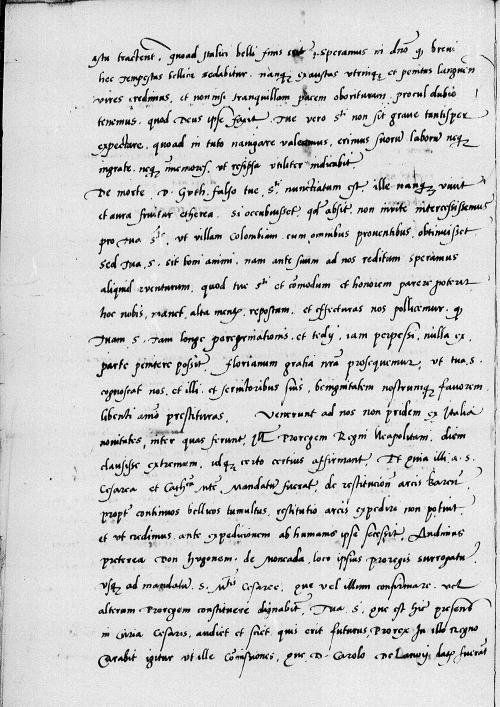 astu tractent, quoad Italici belli finis erit. Speramus in dno q brevi
hec tempestas bellica sedabitur. nanq exaustas utrinq et penitus languen
vires credimus, et non nisi tranquillam pacem oborituram procul dubio
tenemus. quod Deus ipse faxit. Tue vero S.ti non sit grave tantisper
expectare, quoad in tuto navigare valeamus, erimus suorum laborum neq
ingrate, neq memores, ut ipsa utiliter iudicabit
De morte D. Guth. falso tue S.ti nunctiatum est, ille nanq vivit
et aura fruitur etherea. Si occubuisset, qd absit, non invite intercessissemus
pro tua S.te, ut villam Colombiam cum omnibus proventibus, obtinuisset
Sed tua S. sit boni animi. nam ante suum ad nos reditum speramus
aliquid eventurum, quod tue S.ti et comodum et honorem parere poterit
hoc nobis, manet alta mente repostum, et effecturas nos pollicemur. q
tuam S. tam longe peregrinationis et tedij, iam perpessi, nulla ex
parte penitere possit. Florianum gratia nra prosequemur, ut tua S.
cognoscat nos, et illi et servitoribus suis, benignitatem nostramq favorem
libenti animo prestituras. Venerunt ad nos non pridem ex Italia
novitates, inter quas ferunt, Ill. Proregem Regni Neapolitani, diem
clausisse extremum, idq certo certius affirmant. Et quia illi a S.
Cesarea et Cath.ca M.te, mandatum fuerat, de restitucione arcis Baren
propter continuos bellicos tumultus, restitutio arcis expediri non potuit
et ut credimus ante expedicionem ab humanis ipse secessit. Audimus
preterea Don Hugonem de Moncada, loco ipsius proregis surrogatum
usq ad mandata S. M.tis Cesaree, que vel illum confirmare vel
alterum Proregem constituere dignabit. Tua S. que est hic presens
in curia Cesaris, audiet et sciet, qui erit futurus Prorex in illo Regno
Curabit igitur ut ille comissiones, que D. Carolo De Lanoij date fuerant